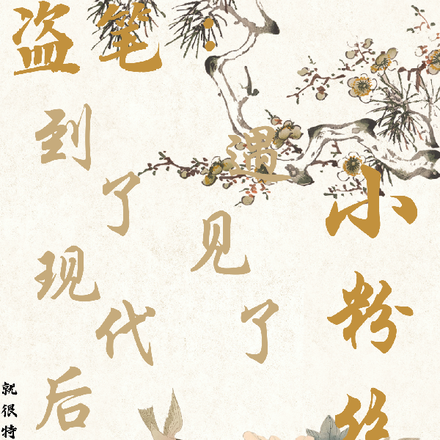 盗笔：
到了现代后
遇见了
小粉丝
就很特